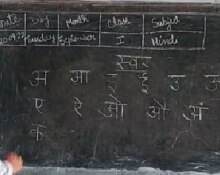 Date Day Month Class Subject
Monday September I Hindi
स्वर
अ आ इ ई उ ऊ
ए ऐ ओ औ अं
क